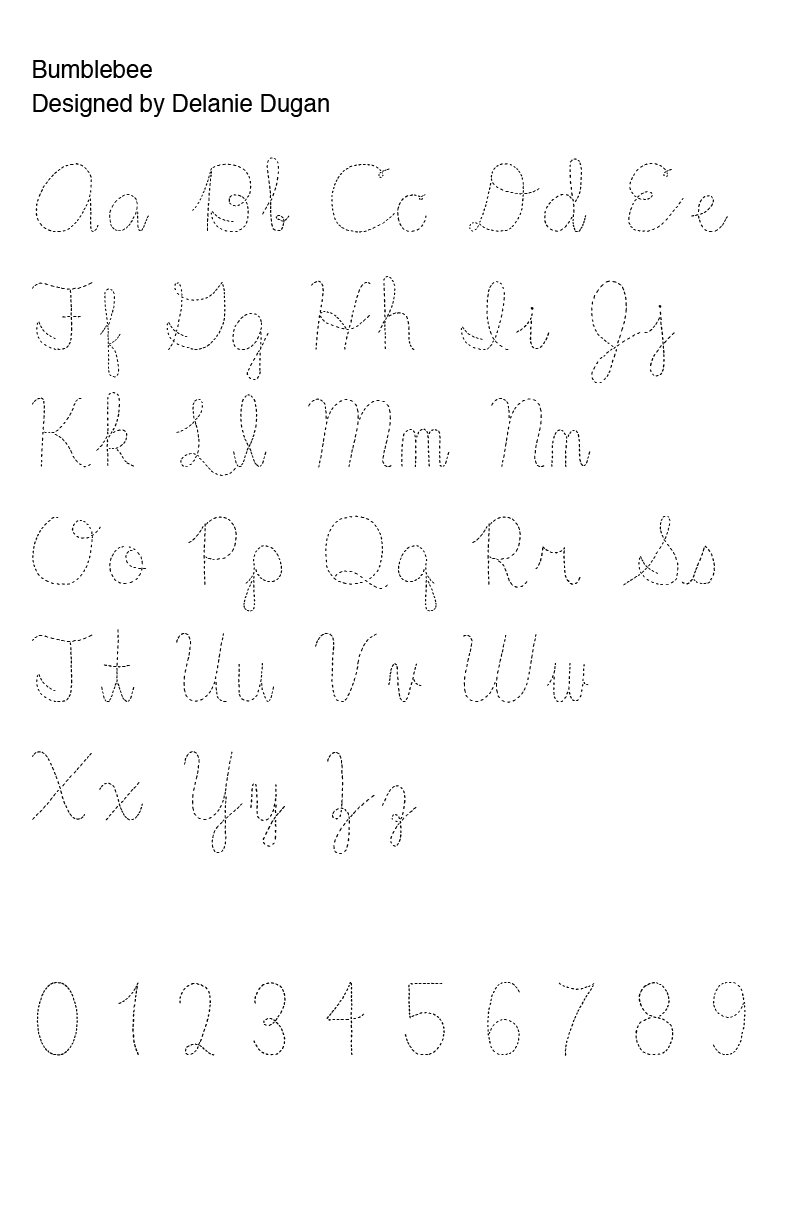 Bumblebee
Designed by Delanie Dugan
Aa Bb Cc Dd Ee
Ff Gg Hh Ii Jj
Kk Ll Mm Nn
Oo Pp Qq Rr Ss
Tt Uu Vv Ww
Xx Yy Zz
0 1 2 3 4 5 6 7 8 9